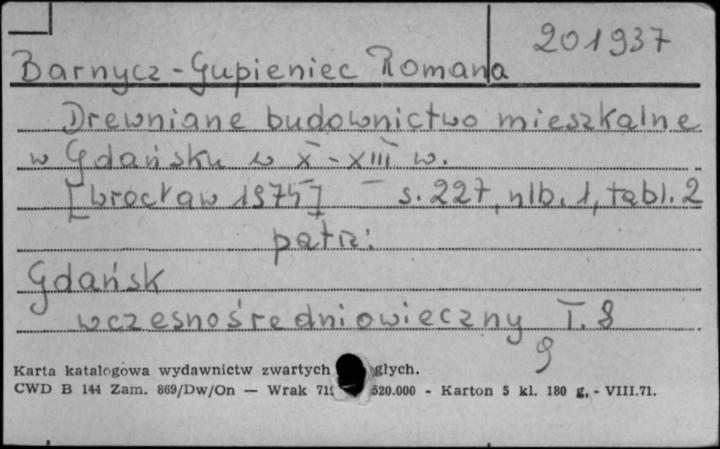 201937
Barnycz-Gupieniec Romana
Drewniane budownictwo mieszkalne
w Gdańsku w X-XIII w.
[Wrocław 1974] - s. 227, nlb. 1, tabl. 2
patrz:
Gdańsk
wczesnośredniowieczny T. 8
9
Karta katalogowa wydawnictw zwartych głych.
CWD B 144 Zam. 869/Dw/On — Wrak 520.000 - Karton 5 kl. 180 g. - VIII.71.